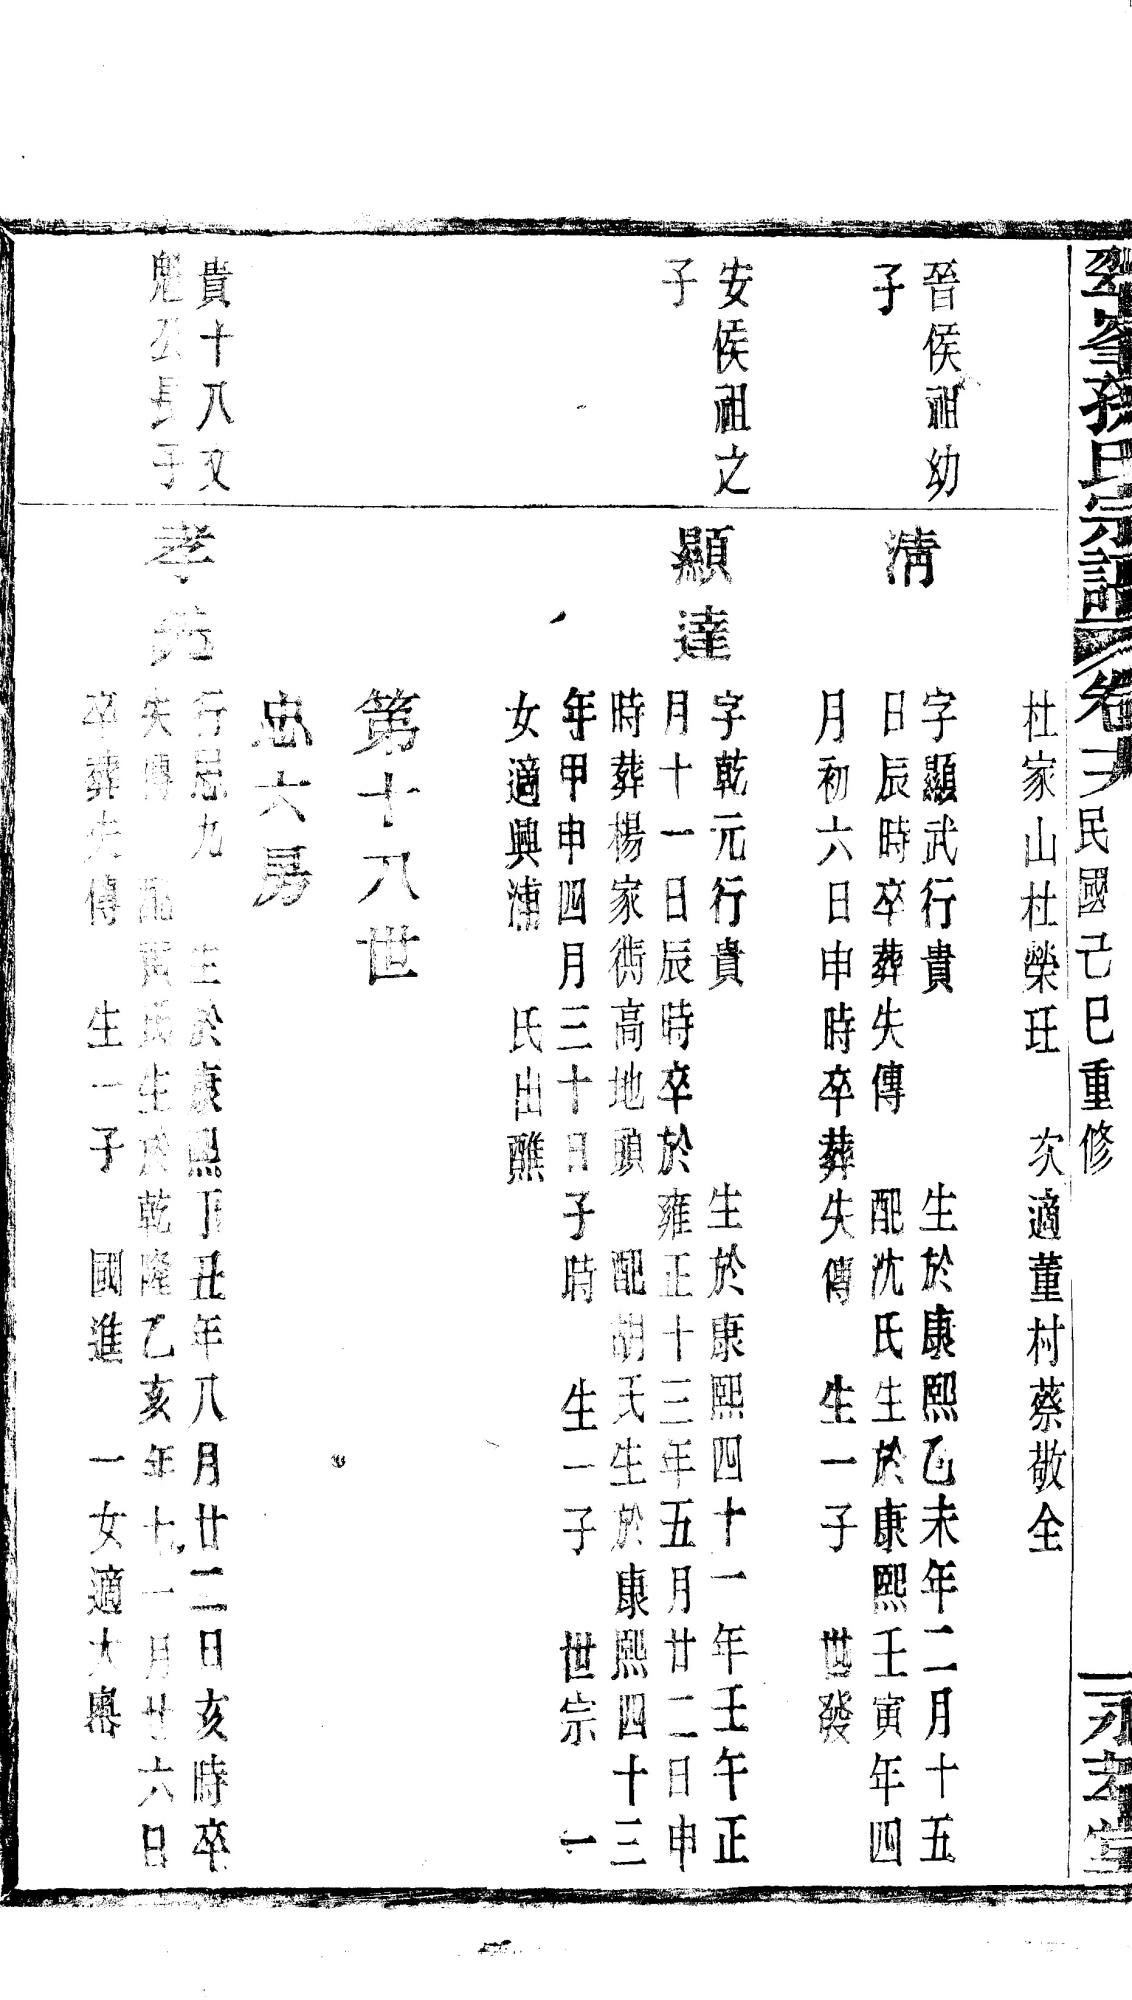 氏宗譜 卷 民國己巳重修
杜家山杜榮玨 次適董村蔡敬全
晉侯祖幼
子
清
字顯武行貴 生於康熙乙未年二月十五
日辰時卒葬失傳 配沈氏生於康熙壬寅年四
月初六日申時卒葬失傳 生一子 世發
安侯祖之
子
顯達
字乾元行貴 生於康熙四十一年壬午正
月十一日辰時卒於雍正十三年五月廿二日申
時葬楊家衖高地頭 配胡氏生於康熙四十三
年甲申四月三十日子時 生一子 世宗 一
女適興浦 氏出醮
第十八世
忠六房
貴十八文
魁公長子
孝
行忠九 生於康熙丁丑年八月廿二日亥時卒
失傳 配黃氏生於乾隆乙亥年十一月廿六日
卒葬失傳 生一子 國進 一女適大嶴